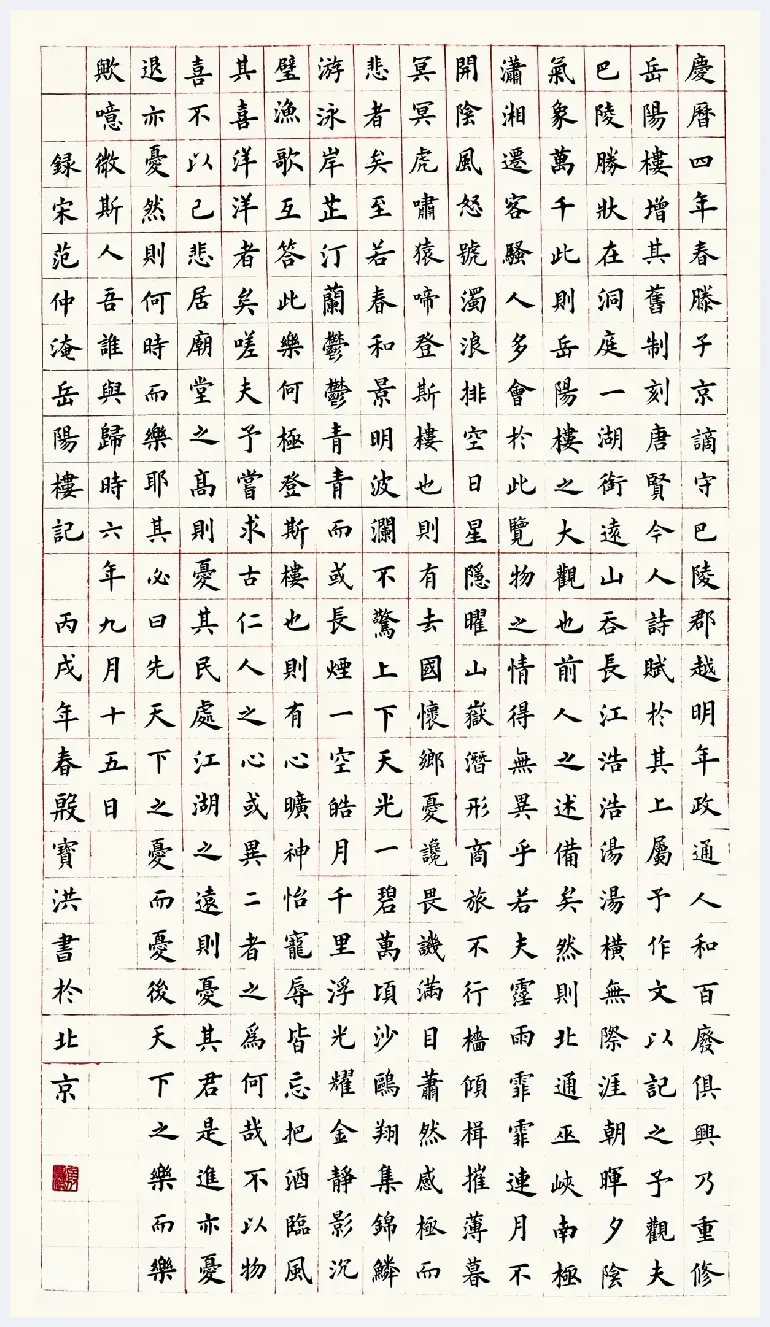 慶曆四年春滕子京謫守巴陵郡越明年政通人和百廢俱興乃重修
岳陽樓增其舊制刻唐賢今人詩賦於其上屬予作文以記之予觀夫
巴陵勝狀在洞庭一湖銜遠山吞長江浩浩湯湯橫無際涯朝暉夕陰
氣象萬千此則岳陽樓之大觀也前人之述備矣然則北通巫峽南極
瀟湘遷客騷人多會於此覽物之情得無異乎若夫霪雨霏霏連月不
開陰風怒號濁浪排空日星隱曜山嶽潛形商旅不行檣傾楫摧薄暮
冥冥虎嘯猿啼登斯樓也則有去國懷鄉憂讒畏譏滿目蕭然感極而
悲者矣至若春和景明波瀾不驚上下天光一碧萬頃沙鷗翔集錦鱗
游泳岸芷汀蘭鬱鬱青青而或長煙一空皓月千里浮光耀金靜影沉
璧漁歌互答此樂何極登斯樓也則有心曠神怡寵辱皆忘把酒臨風
其喜洋洋者矣嗟夫予嘗求古仁人之心或異二者之為何哉不以物
喜不以己悲居廟堂之高則憂其民處江湖之遠則憂其君是進亦憂
退亦憂然則何時而樂耶其必曰先天下之憂而憂後天下之樂而樂
歟噫微斯人吾誰與歸時六年九月十五日
録宋范仲淹岳陽樓記 丙戌年春殷寶洪書於北京